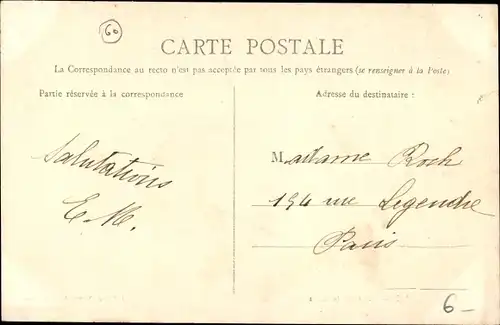 60
CARTE POSTALE
La Correspondance au recto n'est pas acceptée par tous les pays étrangers (se renseigner à la Poste)
Partie réservée à la correspondance
Adresse du destinataire :
Salutations
E. M.
Madame Roch
194 rue Legendre
Paris
6-